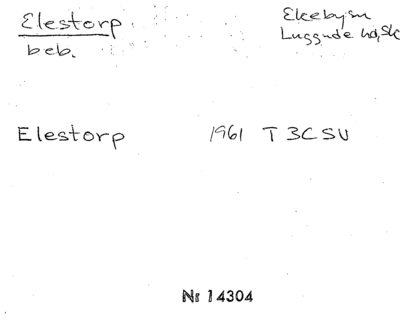 Elestorp
beb.
Ekeby sn
Luggude hd, Sk
Elestorp 1961 T 3C SV
Nr 14304